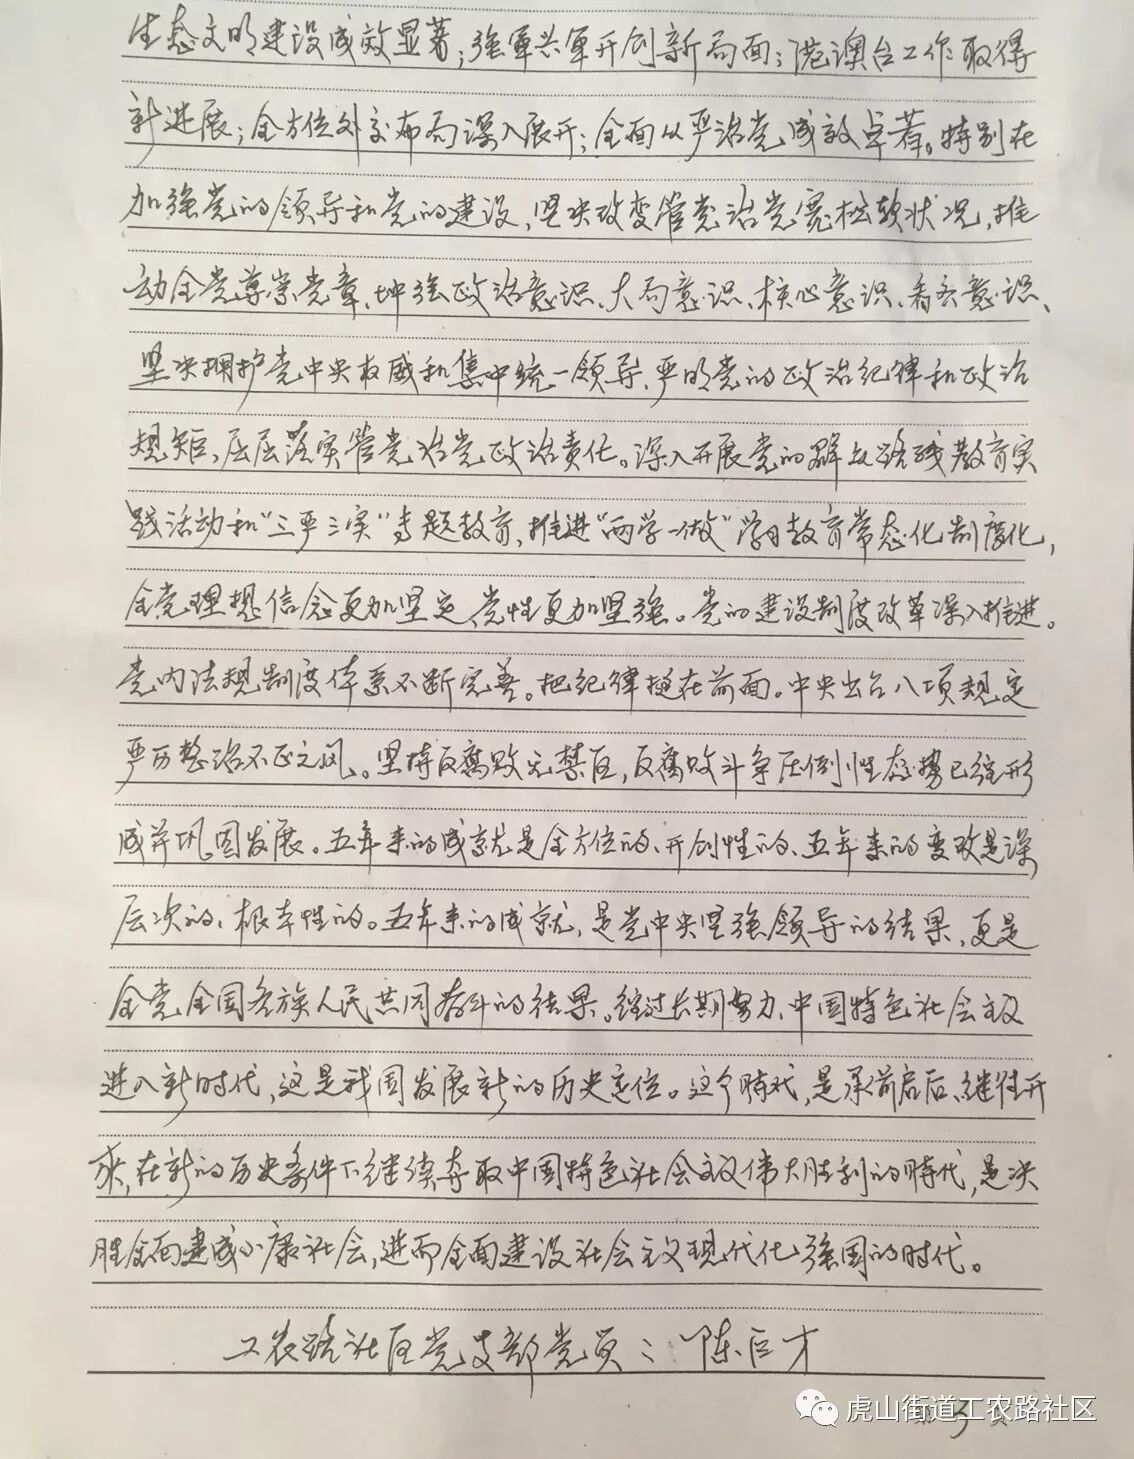 生态文明建设成效显著；强军兴军开创新局面；港澳台工作取得
新进展；全方位外交布局深入展开；全面从严治党成效卓著。特别在
加强党的领导和党的建设，坚决改变管党治党宽松软状况，推
动全党尊崇党章，增强政治意识、大局意识、核心意识、看齐意识、
坚决拥护党中央权威和集中统一领导，严明党的政治纪律和政治
规矩，层层落实管党治党政治责任。深入开展党的群众路线教育实
践活动和“三严三实”专题教育，推进“两学一做”学习教育常态化制度化，
全党理想信念更加坚定，党性更加坚强。党的建设制度改革深入推进。
党内法规制度体系不断完善。把纪律挺在前面。中央出台八项规定
严厉整治不正之风。坚持反腐败无禁区，反腐败斗争压倒性态势已经形
成并巩固发展。五年来的成就是全方位的、开创性的、五年来的变改是深
层次的、根本性的。五年来的成就，是党中央坚强领导的结果，更是
全党全国各族人民共同奋斗的结果。经过长期努力，中国特色社会主义
进入新时代，这是我国发展新的历史定位。这个时代，是承前启后、继往开
来，在新的历史条件下继续夺取中国特色社会主义伟大胜利的时代，是决
胜全面建成小康社会，进而全面建设社会主义现代化强国的时代。
工农路社区党支部党员：陈巨才
第3页
虎山街道工农路社区